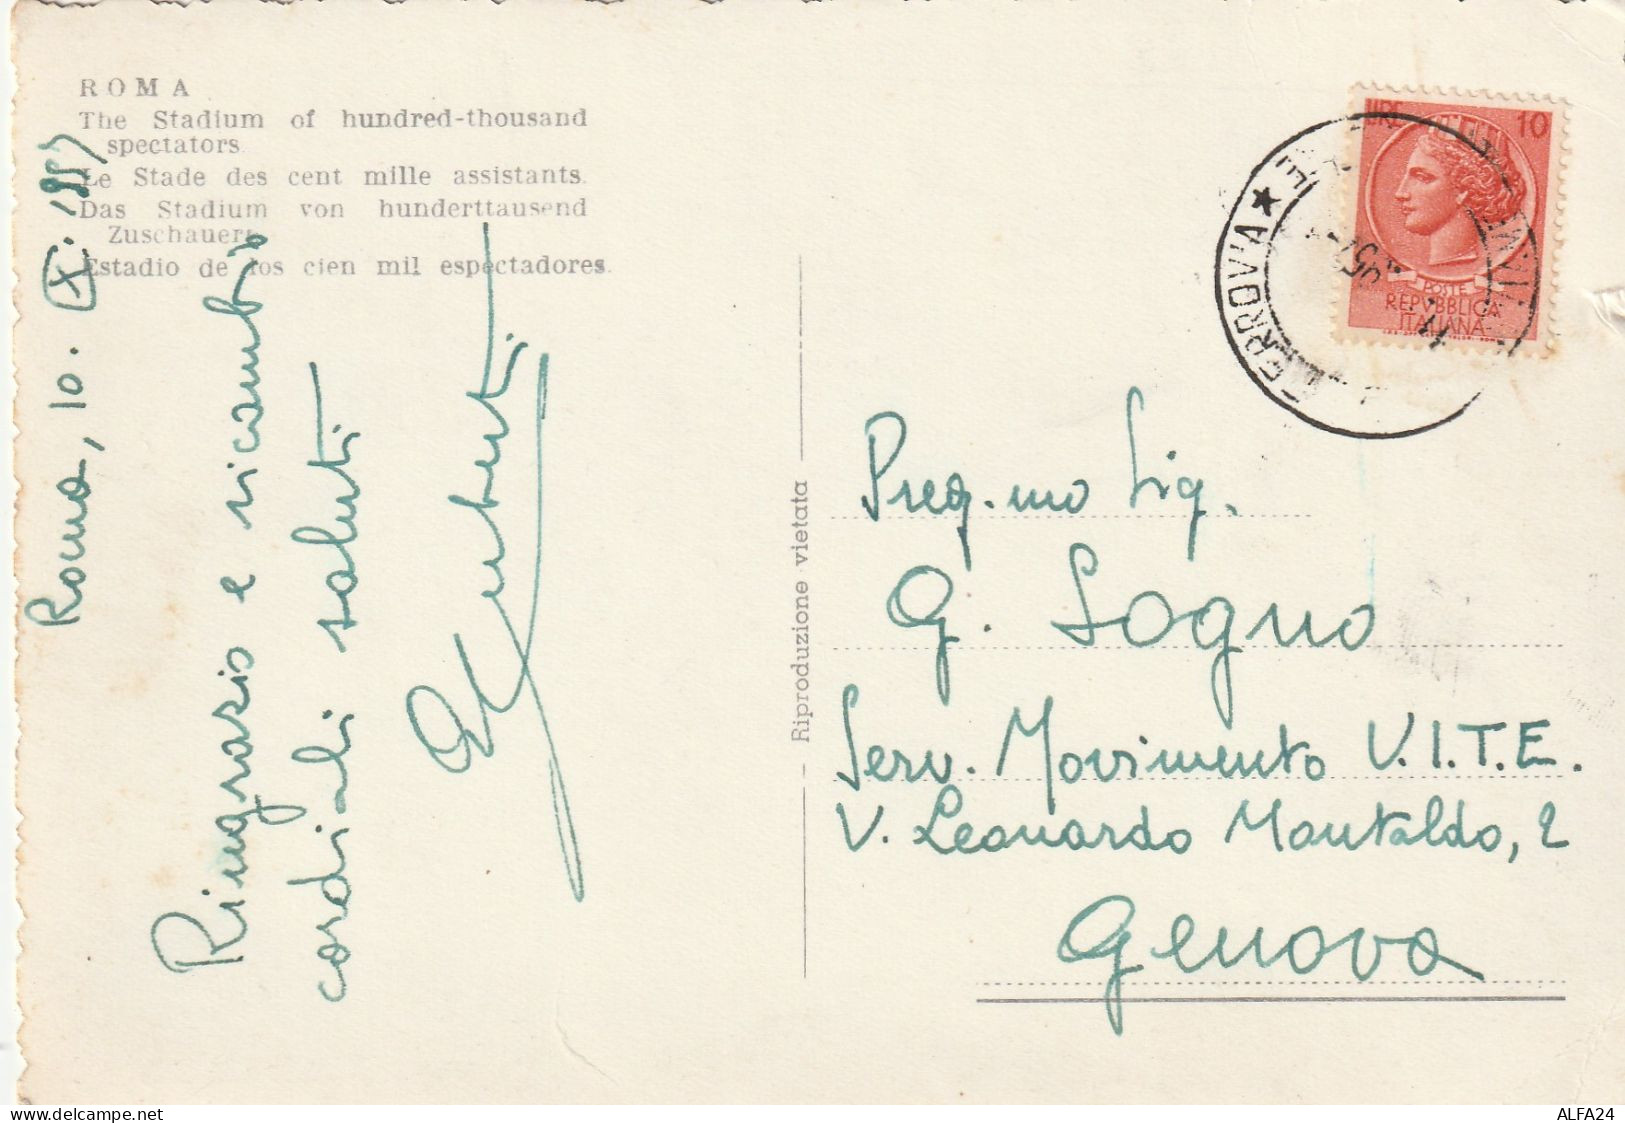 ROMA
The Stadium of hundred-thousand
spectators
Le Stade des cent mille assistants.
Das Stadium von hunderttausend
Zuschauern
Estadio de los cien mil espectadores.
Roma, 10. X. 195
Ringrazio e ricambio
cordiali saluti
Riproduzione vietata
LIRE 10
POSTE
REPVBBLICA
ITALIANA
FERROVIA
Preg.mo Sig.
G. Sogno
Serv. Movimento V.I.T.E.
V. Leonardo Montaldo, 2
Genova
www.delcampe.net
ALFA24